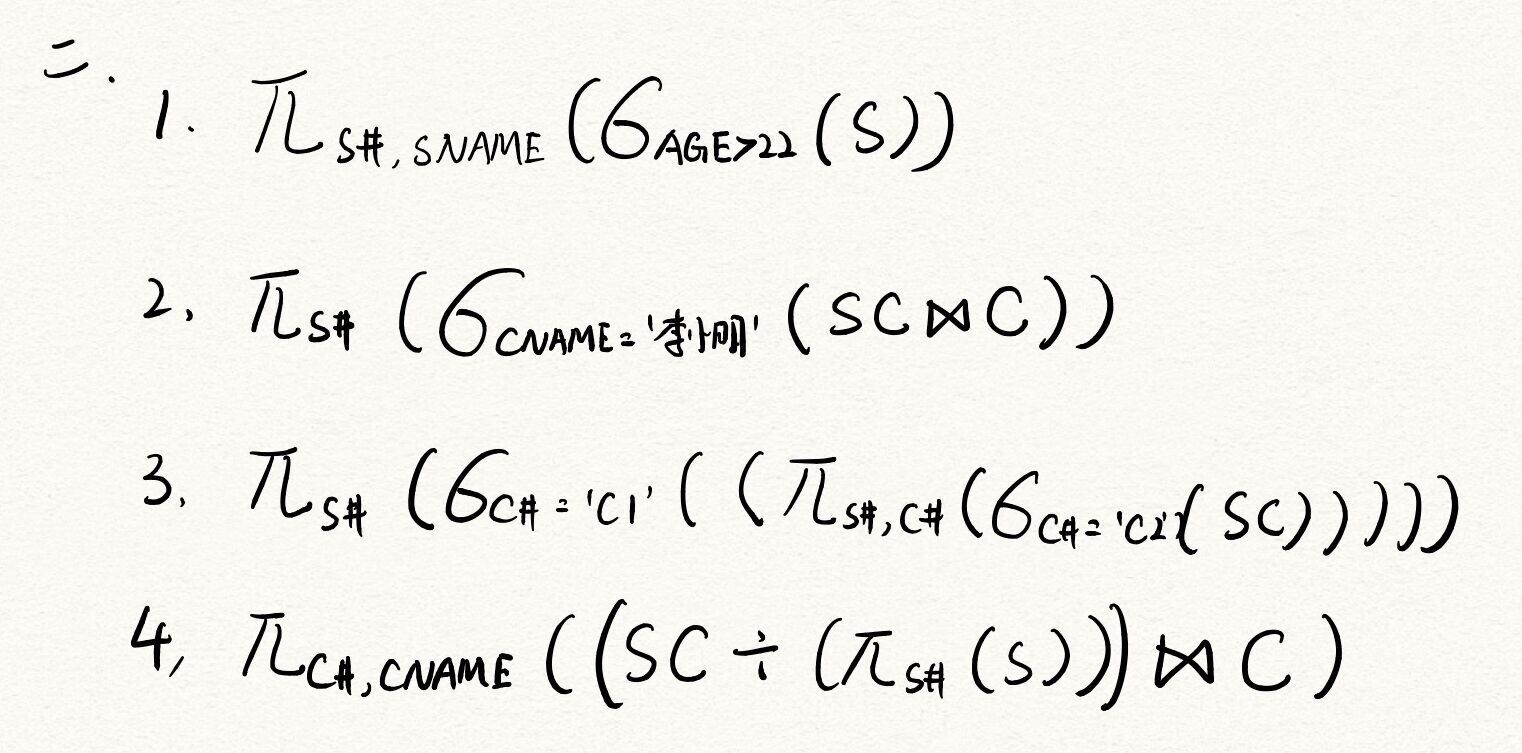 二.
1. π S#,SNAME (σ AGE>22 (S))
2, π S# (σ CNAME='李小明' (SC⋈C))
3, π S# (σ C#='C1' ((π S#,C# (σ C#='C2' (SC)))))
4, π C#,CNAME ((SC÷(π S# (S)))⋈C)